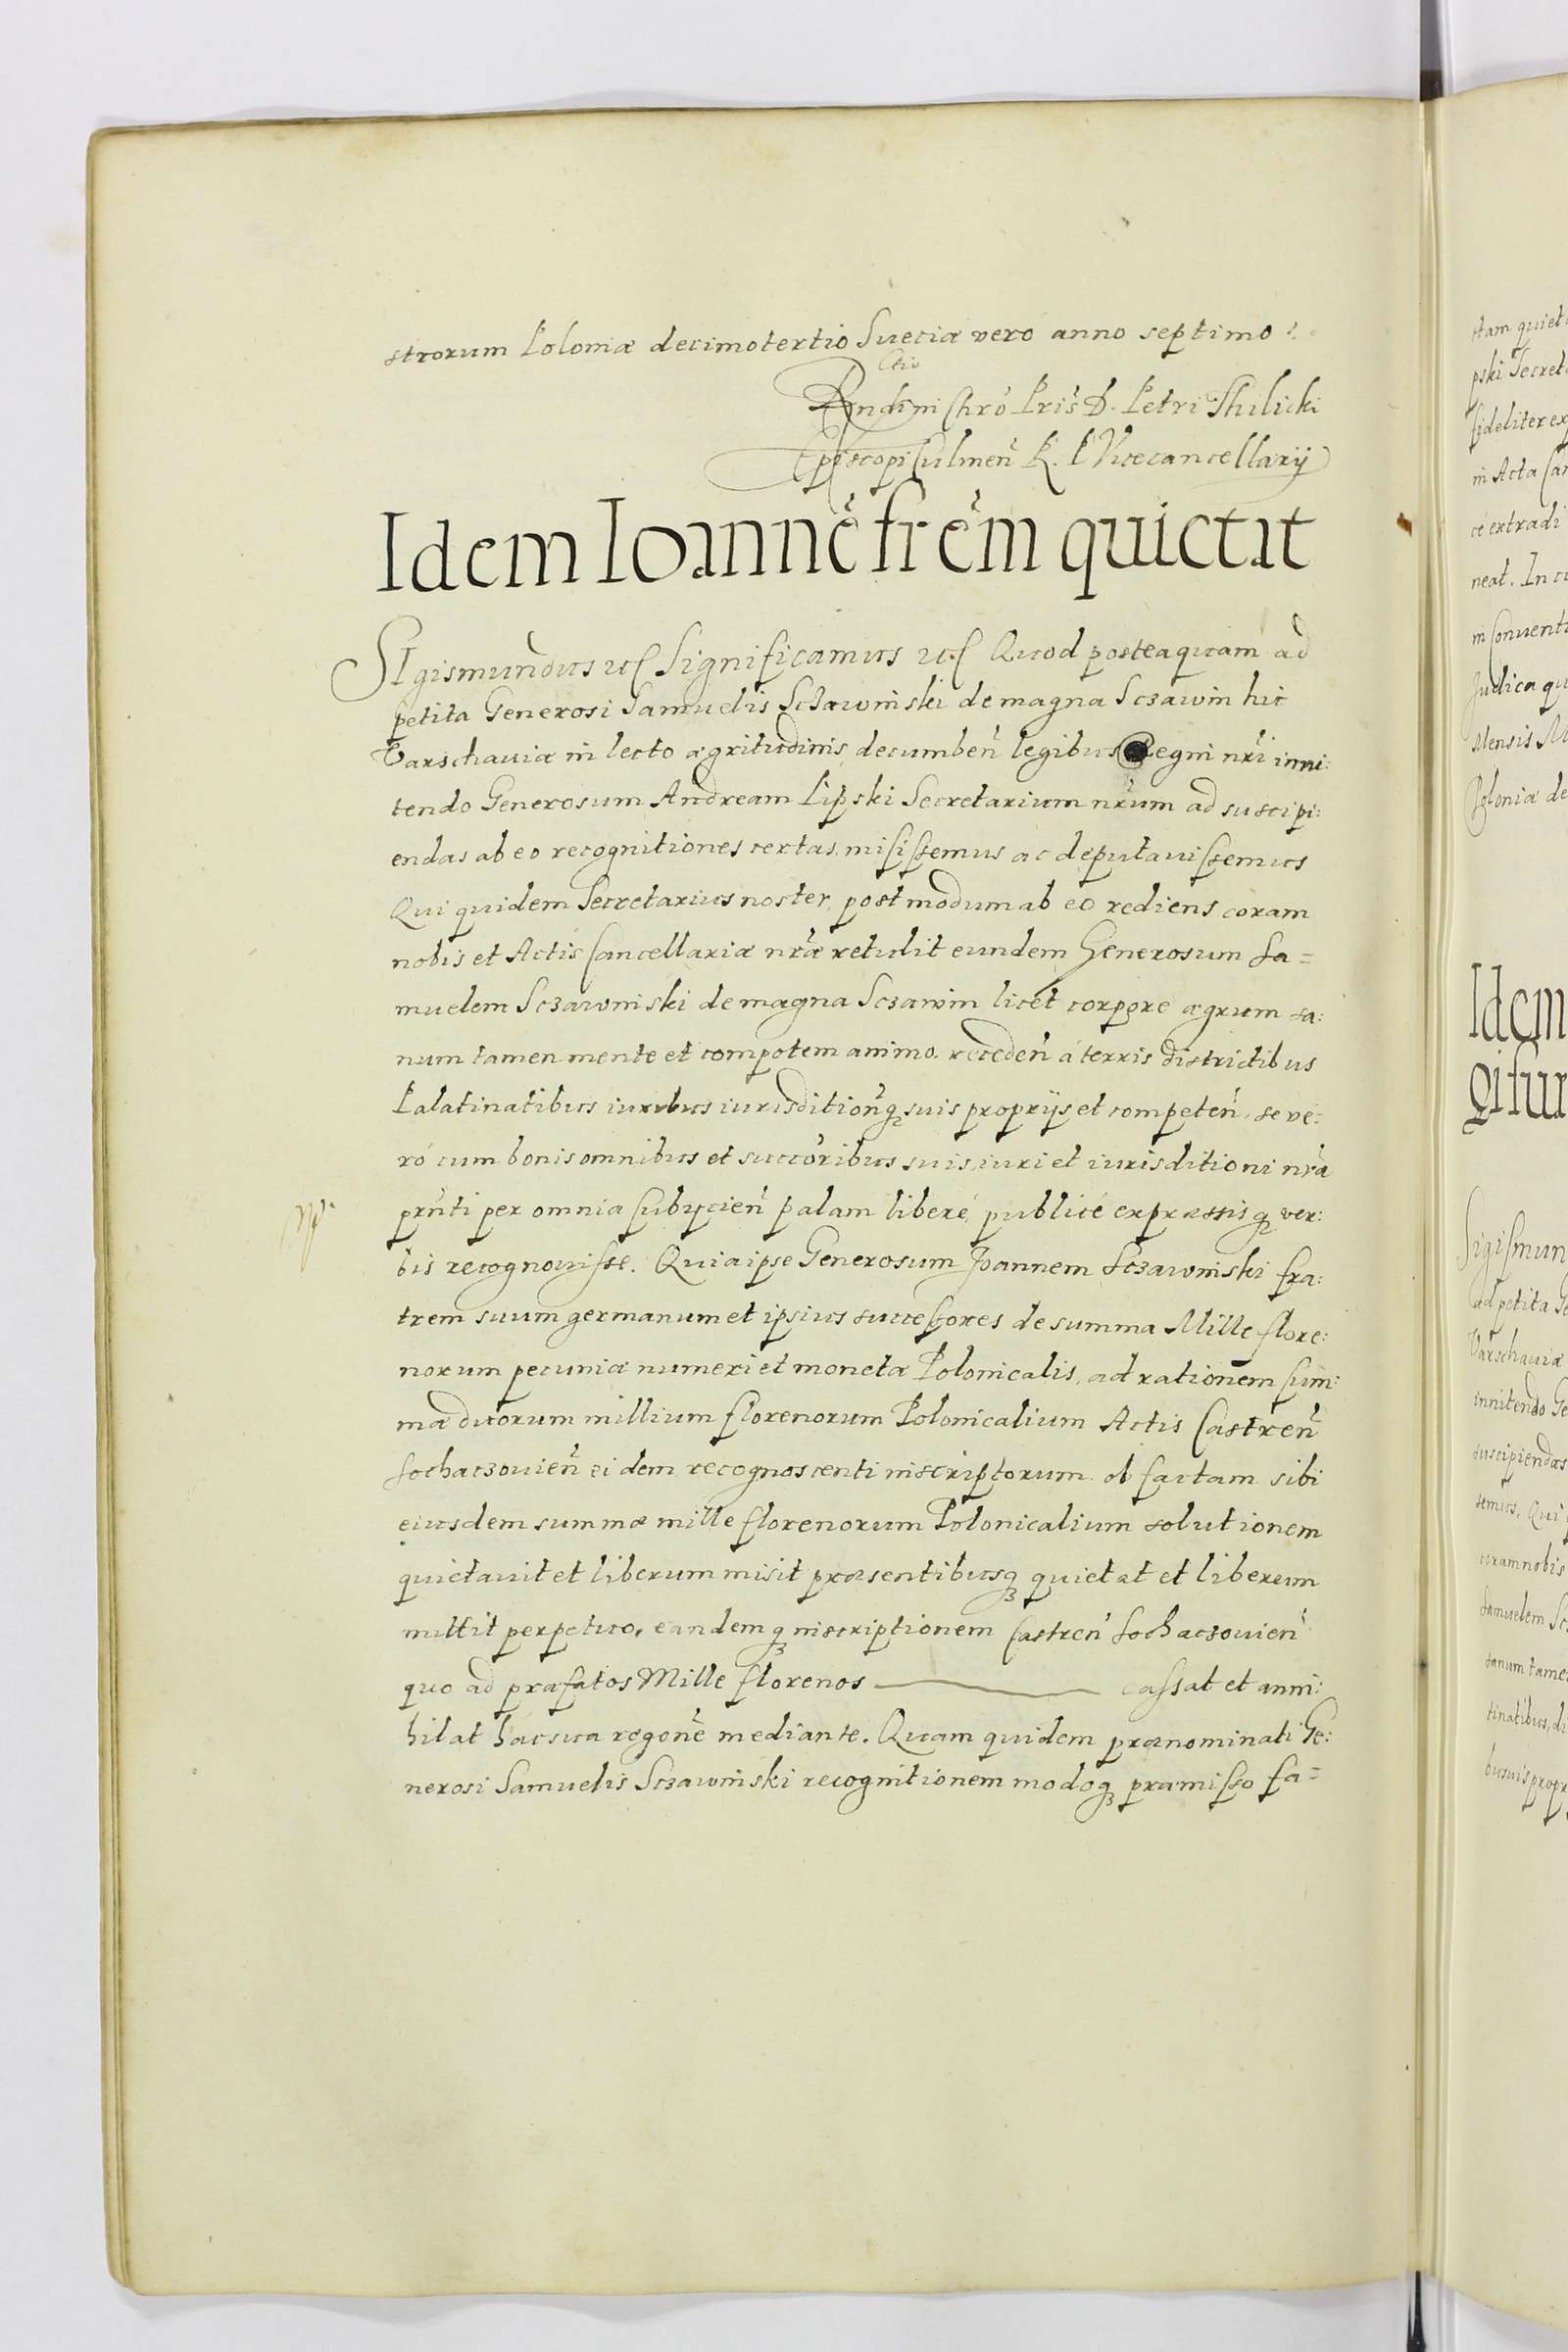 strorum Poloniæ decimotertio Sueciæ vero anno septimo
Rndi in Chrõ Pris D. Petri Thilicki
Episcopi Culmeñ R. P. Vicecancellarij
Idem Ioannẽ frẽm quietat
SIgismundus etc Significamus etc Quod posteaquam ad
petita Generosi Samuelis Sczawinski de magna Sczawin hic
Varschauiæ in lecto ægritudinis decumbeñ legibus Regni nr̃i inni:
tendo Generosum Andream Lipski Secretarium nr̃um ad suscipi:
endas ab eo recognitiones certas misissemus ac deputauissemus
Qui quidem Secretarius noster postmodum ab eo rediens coram
nobis et Actis Cancellariæ nr̃æ retulit eundem Generosum Sa=
muelem Sczawinski de magna Sczawin licet corpore ægrum sa:
num tamen mente et compotem animo recedeñ á terris districtibus
Palatinatibus iuribus iurisditionq; suis proprijs et competeñ se ve:
ró cum bonis omnibus et succoribus suis iuri et iurisditioni nr̃a
prñti per omnia subijcieñ palam liberé publicé expressisq; ver:
bis recognouisse. Quia ipse Generosum Joannem Sczawinski fra:
trem suum germanum et ipsius successores de summa Mille flore:
norum pecuniæ numeri et monetæ Polonicalis, ad rationem sum:
mæ duorum millium florenorum Polonicalium Actis Castreñ
Sochaczouieñ eidem recognoscenti inscriptorum ob factam sibi
eiusdem summæ mille florenorum Polonicalium solutionem
quietauit et liberum misit præsentibusq; quietat et liberum
mittit perpetuo, eandemq; inscriptionem Castreñ Sochaczouieñ
quo ad præfatos Mille florenos cassat et anni:
hilat hac sua regone mediante. Quam quidem prænominati Ge:
nerosi Samuelis Sczawinski recognitionem modoq; præmisso fa=
stam quiet
pski Secret
fideliter ex
in Acta Can
cé extradi
neat. In cu
in Conuentu
Judica qu
Mensis M
Poloniæ de
Idem
gisur
Sigismun
ad petita Ge
Varschauiæ
innitendo Ge
suscipiendas
semus, Qui
coram nobis
Samuelem Sc
sanum tame
tinatibus, di
bus suis propr